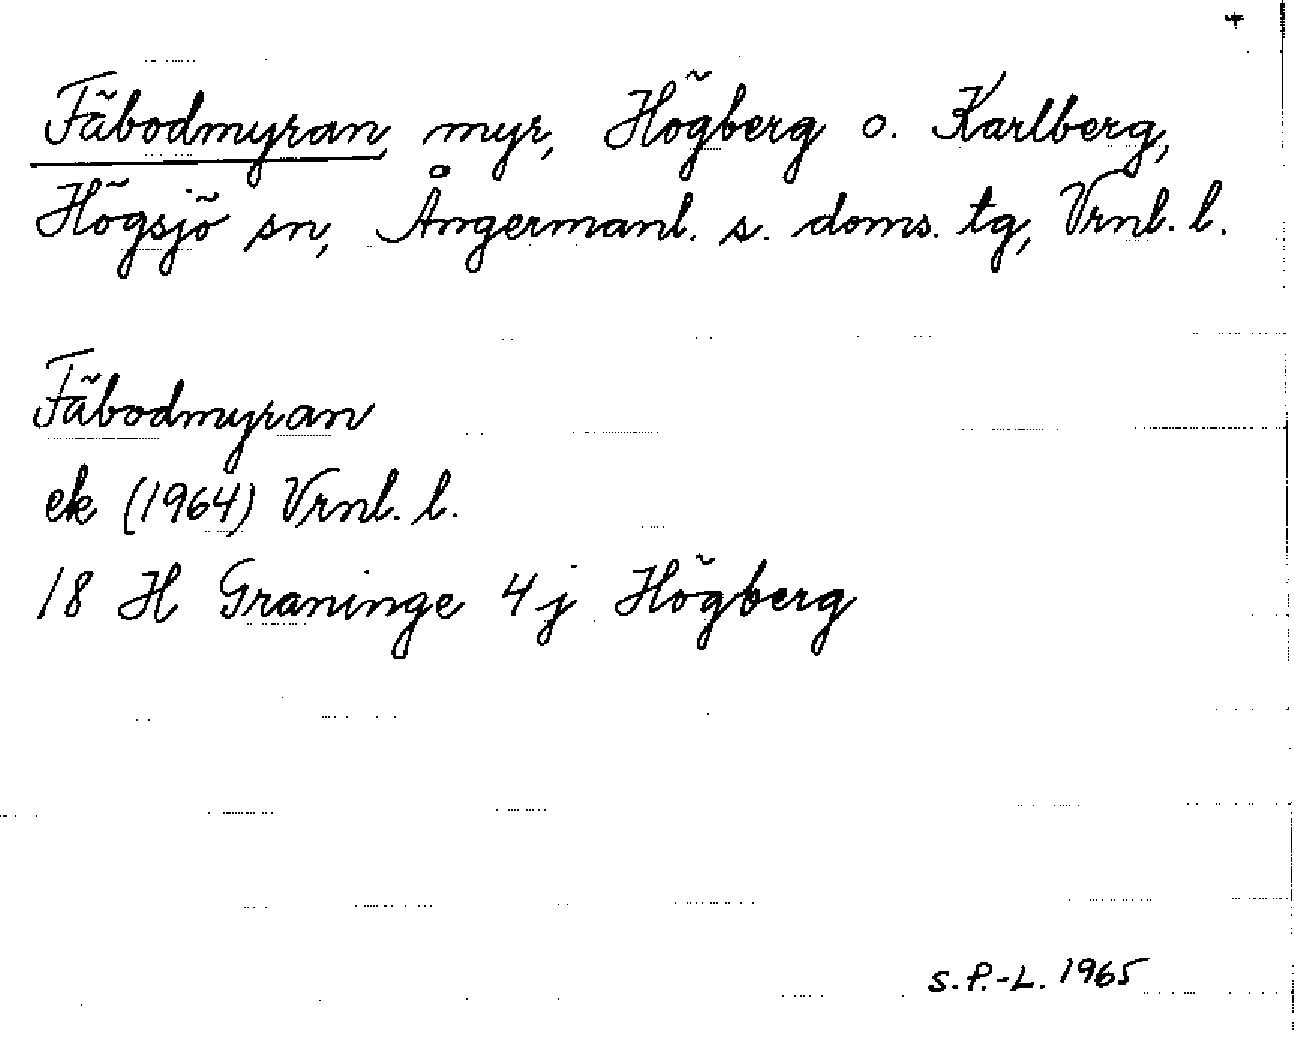 Fäbodmyran, myr, Högberg o. Karlberg,
Högsjö sn, Ångermanl. s. doms. tg, Vrnl. l.
Fäbodmyran
ek (1964) Vrnl. l.
18 H Graninge 4j Högberg
S.P.-L. 1965